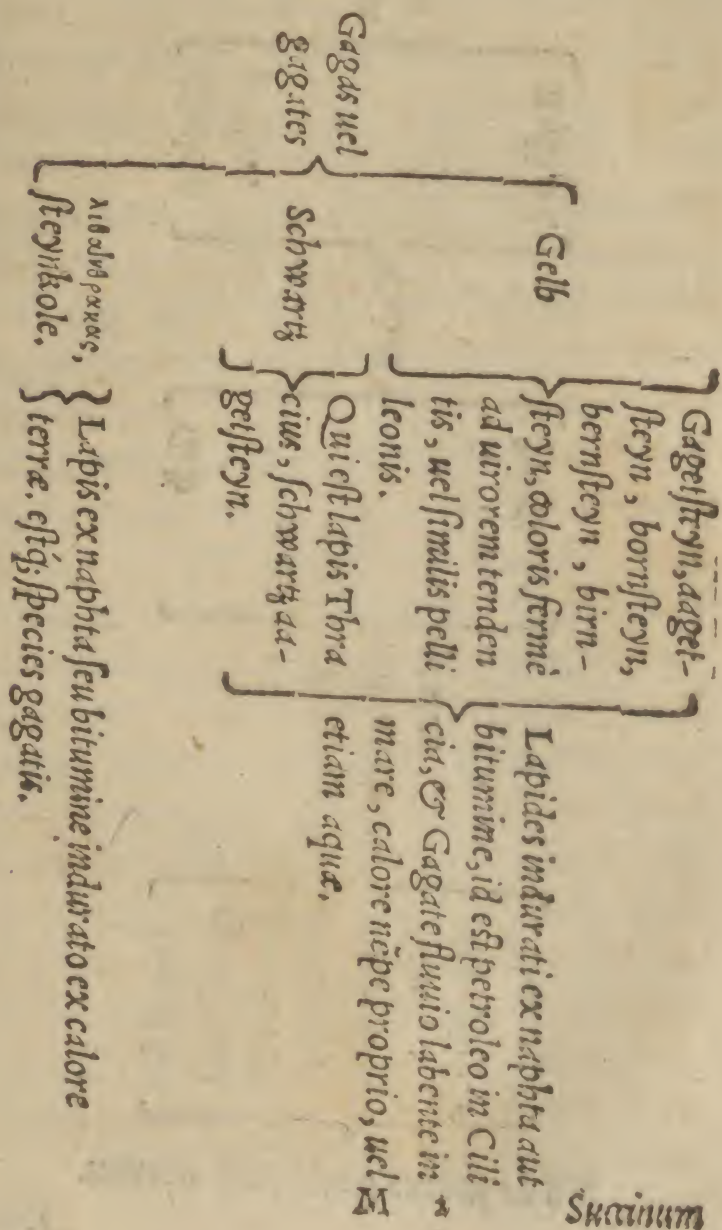 Gagas uel
gagates
Gelb
Gagetſteyn, aaget-
ſteyn, bornſteyn,
bernſteyn, birn-
ſteyn, coloris fermè
ad uirorem tenden
tis, uel ſimilis pelli
leonis.
Schwartz
Qui eſt lapis Thra
cius, ſchwartz aa-
getſteyn.
Lapides indurati ex naphta aut
bitumine, id eſt petroleo in Cili
cia, & Gagate fluuio labente in
mare, calore nẽpe proprio, uel
etiam aquæ.
λιθάνθρακας,
ſteynkole.
Lapis ex naphta ſeu bitumine indurato ex calore
terræ. eſtq́; ſpecies gagatis.
M
Succinum